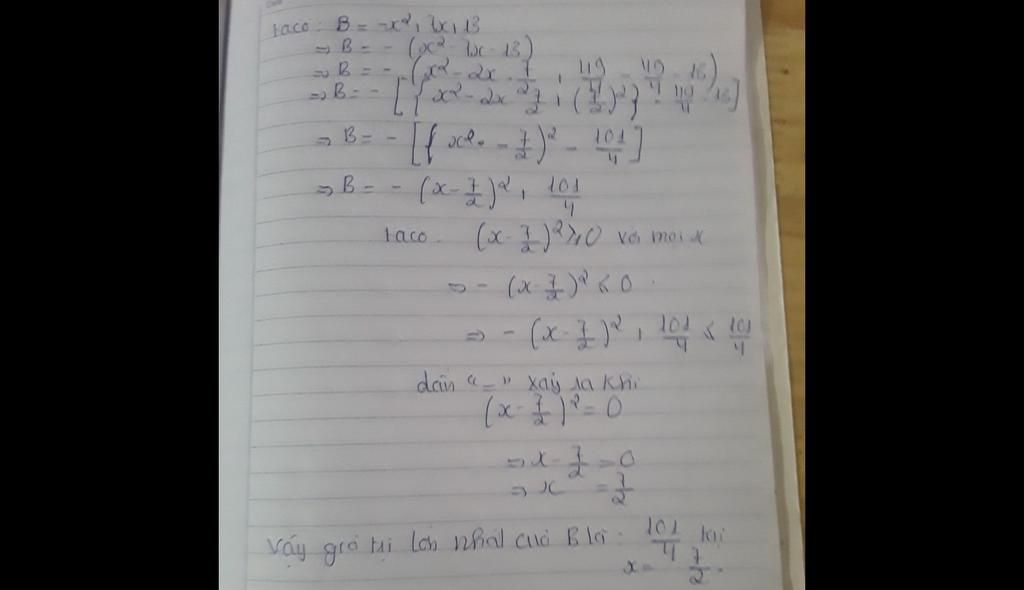 taco: B = -x², 7x, 13
⇒ B = - (x² - 7x - 13)
⇒ B = - (x² - 2x . 7/2 , 49/4 - 49/4 - 13)
⇒ B = - [{x² - 2x 7/2 , (7/2)²} - 49/4 - 13]
⇒ B = - [{x - 7/2)² - 101/4]
⇒ B = - (x - 7/2)² , 101/4
taco. (x - 7/2)² ≥ 0 với mọi x
⇒ - (x - 7/2)² ≤ 0
⇒ - (x - 7/2)² , 101/4 ≤ 101/4
dấu "=" xảy ra khi
(x - 7/2)² = 0
⇒ x - 7/2 = 0
⇒ x = 7/2
Vậy giá trị lớn nhất của B là: 101/4 khi
x = 7/2.